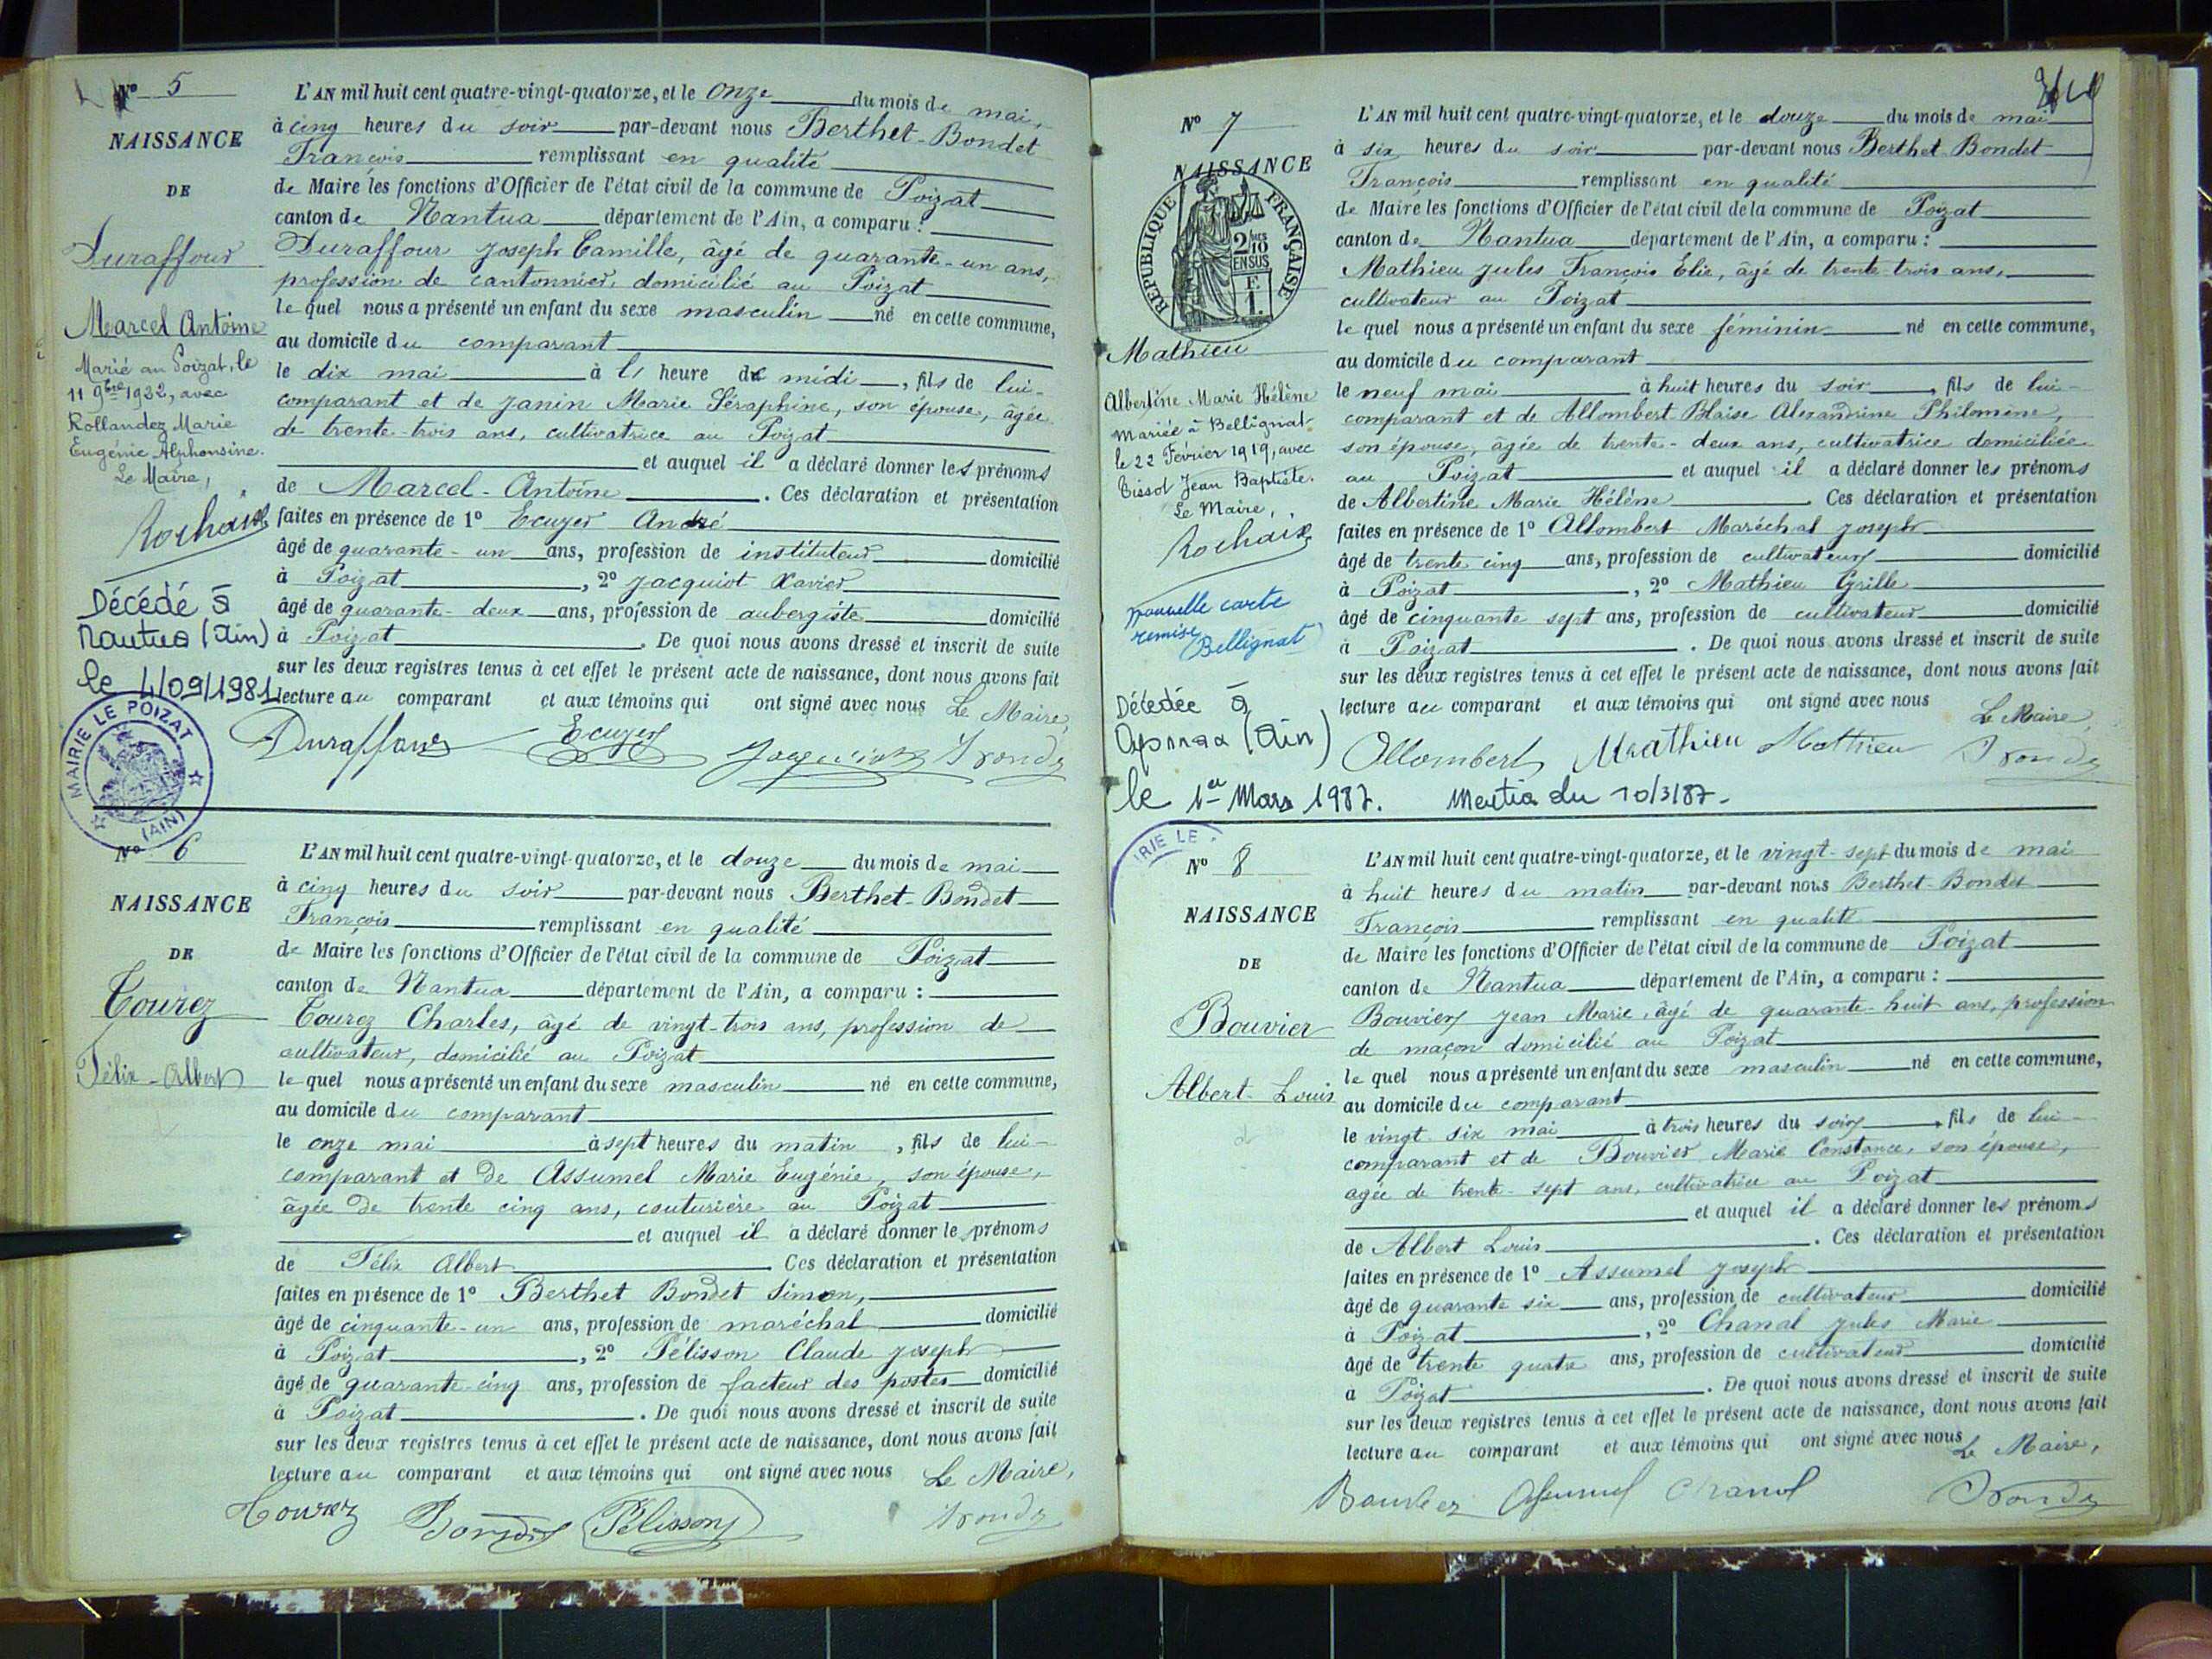 Nº 5
NAISSANCE
DE
Duraffour
Marcel Antoine
Marié au Poizat, le
11 9bre 1922, avec
Rollandez Marie
Eugénie Alphonsine.
Le Maire,
Rochaix
Décédé à
Nantua (Ain)
le 4/09/1981
MAIRIE LE POIZAT
(AIN)
L'AN mil huit cent quatre-vingt-quatorze, et le onze du mois de mai,
à cinq heures du soir par-devant nous Berthet-Bondet
François remplissant en qualité
de Maire les fonctions d'Officier de l'état civil de la commune de Poizat
canton de Nantua département de l'Ain, a comparu :
Duraffour Joseph Camille, âgé de quarante-un ans,
profession de cantonnier, domicilié au Poizat
le quel nous a présenté un enfant du sexe masculin né en cette commune,
au domicile du comparant
le dix mai à heure de midi, fils de lui-
comparant et de Janin Marie Séraphine, son épouse, âgée
de trente-trois ans, cultivatrice au Poizat
et auquel il a déclaré donner les prénoms
de Marcel-Antoine. Ces déclaration et présentation
faites en présence de 1º Ecuyer André
âgé de quarante-un ans, profession de instituteur domicilié
à Poizat, 2º Jacquiot Xavier
âgé de quarante-deux ans, profession de aubergiste domicilié
à Poizat. De quoi nous avons dressé et inscrit de suite
sur les deux registres tenus à cet effet le présent acte de naissance, dont nous avons fait
lecture au comparant et aux témoins qui ont signé avec nous Le Maire,
Duraffour Ecuyer Jacquiot
Nº 6
NAISSANCE
DE
Tourez
Félix-Albert
L'AN mil huit cent quatre-vingt-quatorze, et le douze du mois de mai
à cinq heures du soir par-devant nous Berthet-Bondet
François remplissant en qualité
de Maire les fonctions d'Officier de l'état civil de la commune de Poizat
canton de Nantua département de l'Ain, a comparu :
Tourez Charles, âgé de vingt-trois ans, profession de
cultivateur, domicilié au Poizat
le quel nous a présenté un enfant du sexe masculin né en cette commune,
au domicile du comparant
le onze mai à sept heures du matin, fils de lui-
comparant et de Assumel Marie Eugénie, son épouse,
âgée de trente cinq ans, couturière au Poizat
et auquel il a déclaré donner le prénoms
de Félix Albert. Ces déclaration et présentation
faites en présence de 1º Berthet Bondet Simon,
âgé de cinquante-un ans, profession de maréchal domicilié
à Poizat, 2º Pélisson Claude Joseph
âgé de quarante-cinq ans, profession de facteur des postes domicilié
à Poizat. De quoi nous avons dressé et inscrit de suite
sur les deux registres tenus à cet effet le présent acte de naissance, dont nous avons fait
lecture au comparant et aux témoins qui ont signé avec nous Le Maire,
Tourez Pélisson
Nº 7
NAISSANCE
REPUBLIQUE FRANÇAISE
2/10
EN SUS
E
1.
Mathieu
Albertine Marie Hélène
Mariée à Bellignat
le 22 Février 1919, avec
Tissot Jean Baptiste.
Le Maire,
Rochaix
nouvelle carte
remise
Bellignat
Décédée à
Oyonnax (Ain)
le 1er Mars 1987. Mention du 10/3/87-
L'AN mil huit cent quatre-vingt-quatorze, et le douze du mois de mai
à six heures du soir par-devant nous Berthet-Bondet
François remplissant en qualité
de Maire les fonctions d'Officier de l'état civil de la commune de Poizat
canton de Nantua département de l'Ain, a comparu :
Mathieu Jules François Elie, âgé de trente-trois ans,
cultivateur au Poizat
le quel nous a présenté un enfant du sexe féminin né en cette commune,
au domicile du comparant
le neuf mai à huit heures du soir, fils de lui-
comparant et de Allombert Blaise Alexandrine Philomène,
son épouse, âgée de trente-deux ans, cultivatrice domiciliée
au Poizat et auquel il a déclaré donner les prénoms
de Albertine Marie Hélène. Ces déclaration et présentation
faites en présence de 1º Allombert Maréchal Joseph
âgé de trente cinq ans, profession de cultivateur domicilié
à Poizat, 2º Mathieu Cyrille
âgé de cinquante sept ans, profession de cultivateur domicilié
à Poizat. De quoi nous avons dressé et inscrit de suite
sur les deux registres tenus à cet effet le présent acte de naissance, dont nous avons fait
lecture au comparant et aux témoins qui ont signé avec nous
Le Maire,
Allombert Mathieu Mathieu
RIE LE
Nº 8
NAISSANCE
DE
Bouvier
Albert-Louis
L'AN mil huit cent quatre-vingt-quatorze, et le vingt-sept du mois de mai
à huit heures du matin par-devant nous Berthet-Bondet
François remplissant en qualité
de Maire les fonctions d'Officier de l'état civil de la commune de Poizat
canton de Nantua département de l'Ain, a comparu :
Bouvier Jean Marie, âgé de quarante-huit ans, profession
de maçon domicilié au Poizat
le quel nous a présenté un enfant du sexe masculin né en cette commune,
au domicile du comparant
le vingt six mai à trois heures du soir, fils de lui-
comparant et de Bouvier Marie Constance, son épouse,
agée de trente-sept ans, cultivatrice au Poizat
et auquel il a déclaré donner les prénoms
de Albert Louis. Ces déclaration et présentation
faites en présence de 1º Assumel Joseph
âgé de quarante six ans, profession de cultivateur domicilié
à Poizat, 2º Chanal Jules Marie
âgé de trente quatre ans, profession de cultivateur domicilié
à Poizat. De quoi nous avons dressé et inscrit de suite
sur les deux registres tenus à cet effet le présent acte de naissance, dont nous avons fait
lecture au comparant et aux témoins qui ont signé avec nous
Le Maire,
Bouvier Assumel Chanal